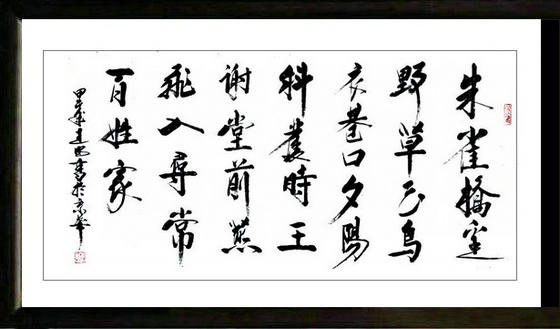 朱雀橋邊
野草花烏
衣巷口夕陽
斜舊時王
謝堂前燕
飛入尋常
百姓家
甲午書於京華